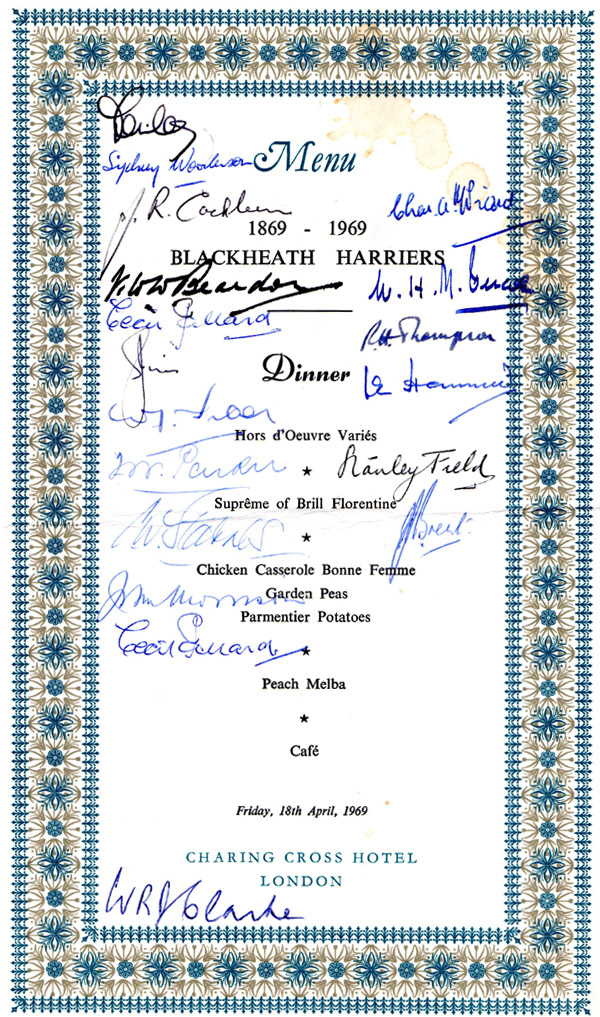 Menu
Sydney Wooderson
J. R. Cochleen
1869 - 1969
BLACKHEATH HARRIERS
W. H. M.
Cecil Gillard
R.H. Thompson
Dinner
Hors d'Oeuvre Variés
★
Stanley Field
Suprême of Brill Florentine
★
Brent
Chicken Casserole Bonne Femme
Garden Peas
John Morrison
Parmentier Potatoes
Cecil Gillard
★
Peach Melba
★
Café
Friday, 18th April, 1969
CHARING CROSS HOTEL
LONDON
WRJ Clarke